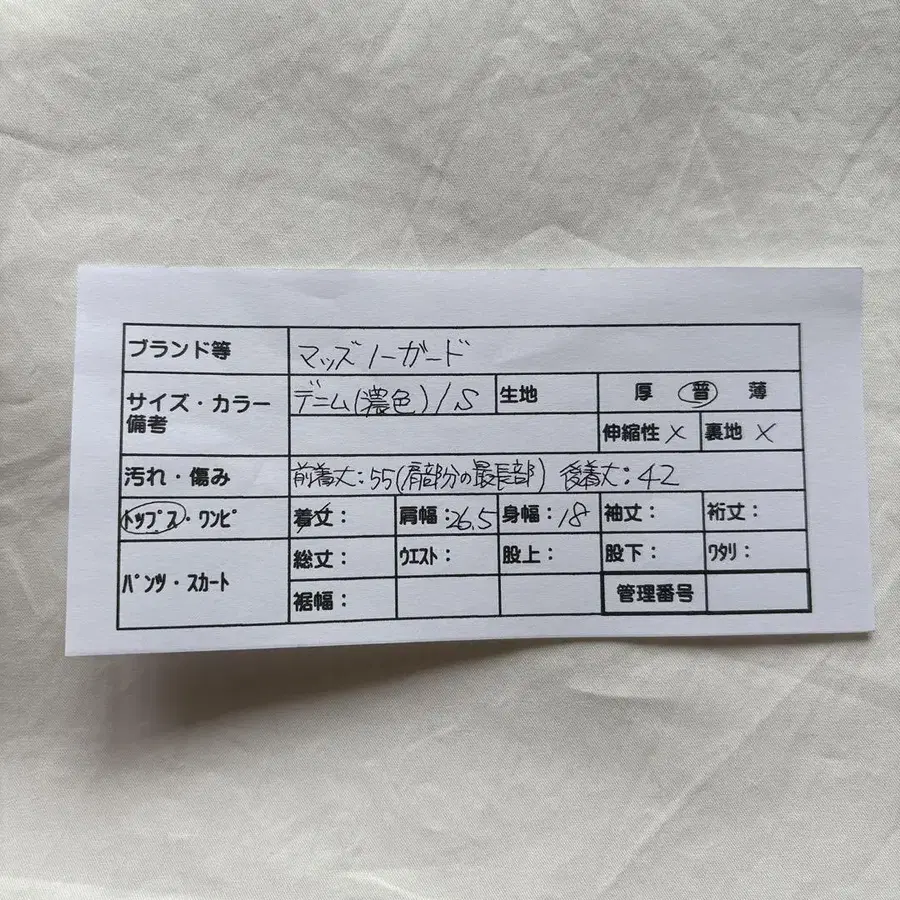 ブランド等 マッズノーガード
サイズ・カラー備考 デニム(濃色)/S 生地 厚 普 薄
伸縮性 × 裏地 ×
汚れ・傷み 前着丈:55(肩部分の最長部) 後着丈:42
トップス・ワンピ 着丈: 肩幅:26.5 身幅:18 袖丈: 裄丈:
パンツ・スカート 総丈: ウエスト: 股上: 股下: ワタリ:
裾幅: 管理番号